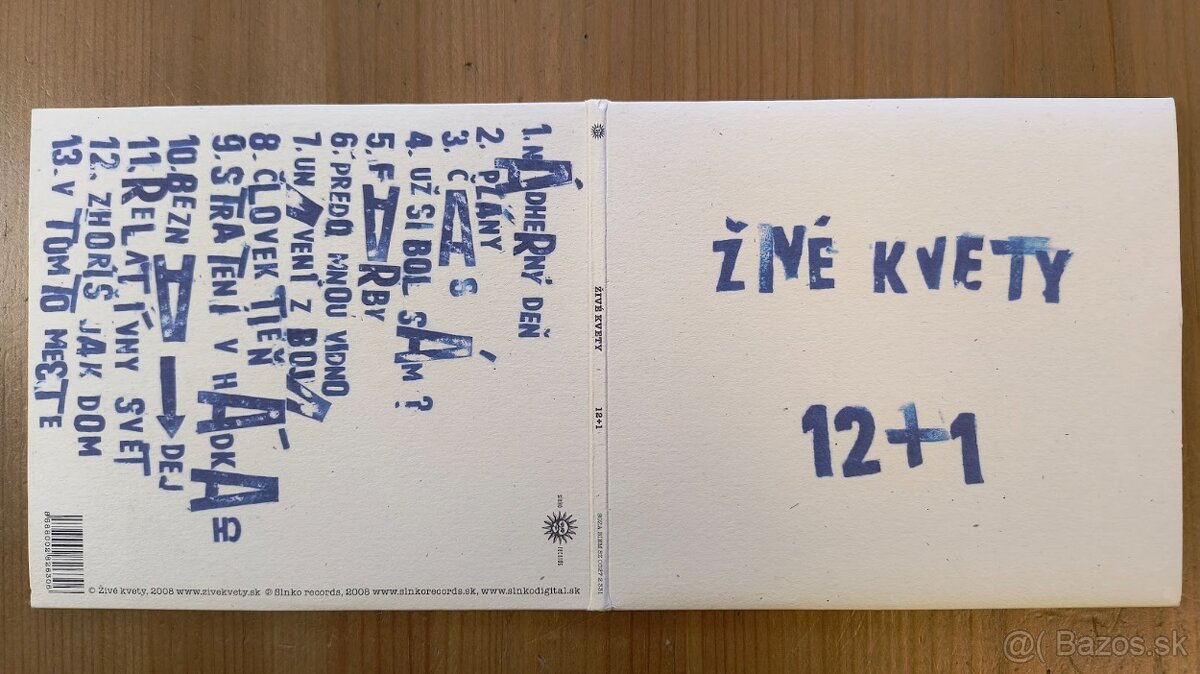 1. NÁDHERNÝ DEŇ
2. PLÁNY
3. ČAS
4. UŽ SI BOL SÁM?
5. FARBY
6. PREDO MNOU VIDNO
7. UNAVENÍ Z BOJA
8. ČLOVEK TIEŇ
9. STRATENÍ V HÁDKACH
10. BEŽNÁ → DEJ
11. RELATÍVNY SVET
12. ZHORÍŠ JAK DOM
13. V TOMTO MESTE
© Živé kvety, 2008 www.zivekvety.sk ℗ Slnko records, 2008 www.slnkorecords.sk, www.slnkodigital.sk
SLNKO
RECORDS
ŽIVÉ KVETY
12+1
ŽIVÉ KVETY
12+1
@( Bazos.sk